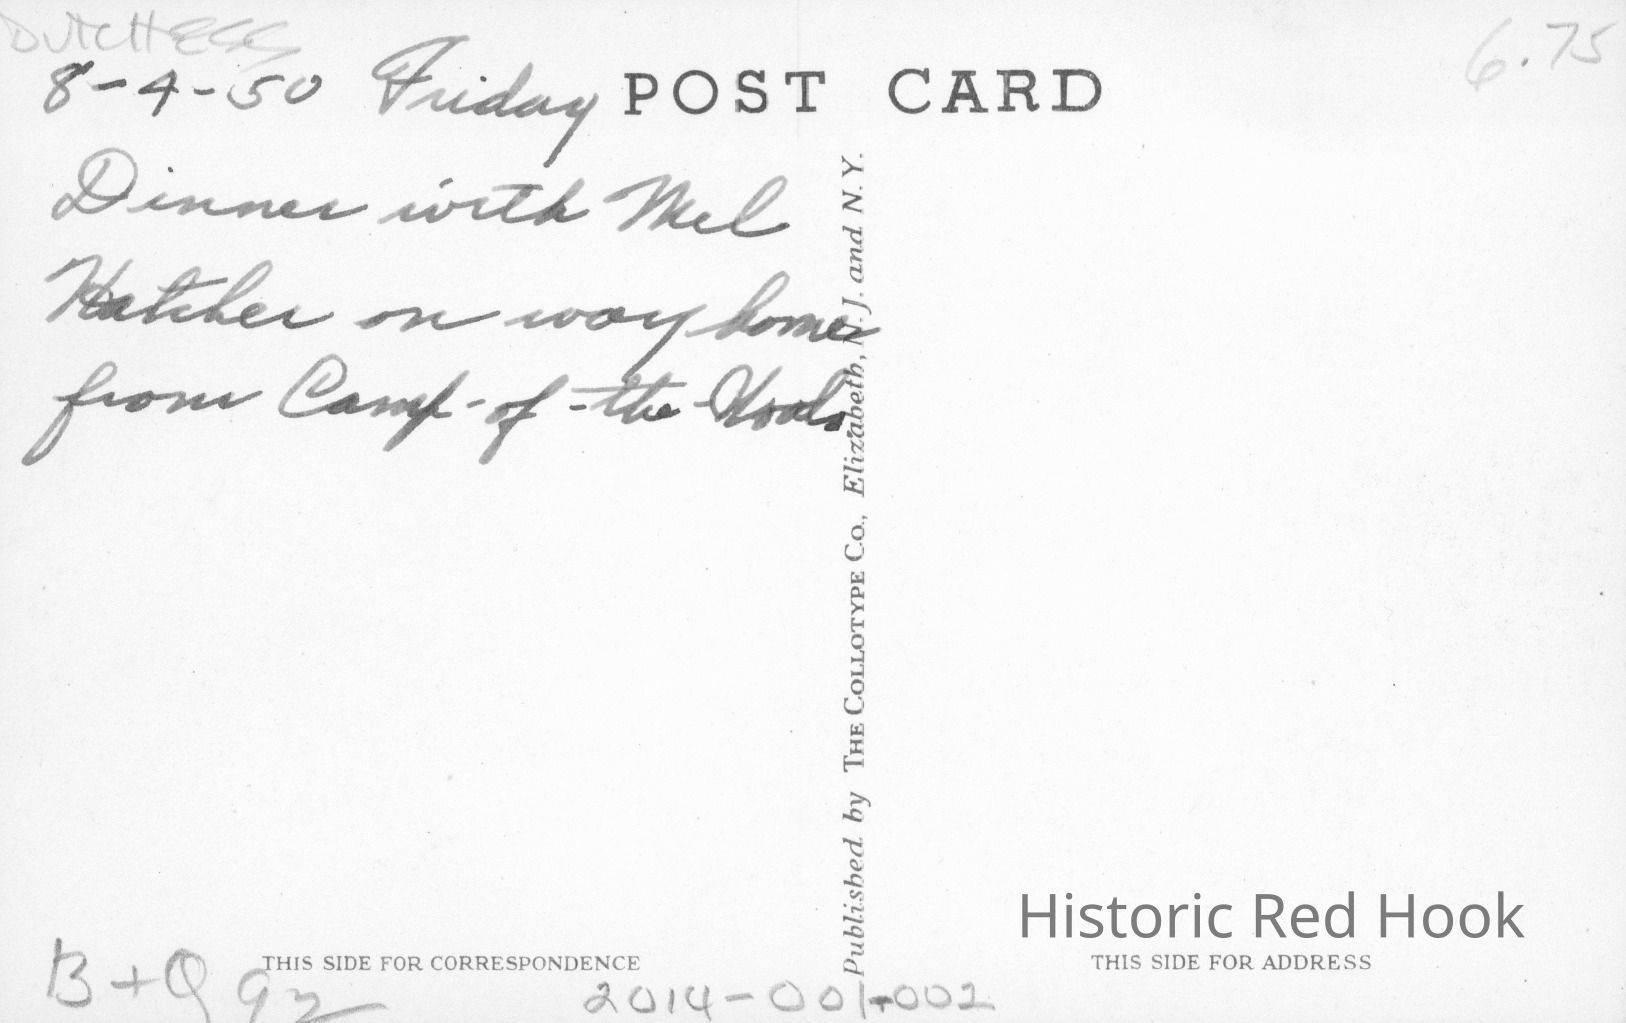 DUTCHESS
6.75
8-4-50 Friday
POST CARD
Dinner with Mel
Hatcher on way home
from Camp-of-the-Woods.
Published by THE COLLOTYPE Co., Elizabeth, N. J. and N. Y.
Historic Red Hook
THIS SIDE FOR CORRESPONDENCE
THIS SIDE FOR ADDRESS
B+Q 92
2014-001-002